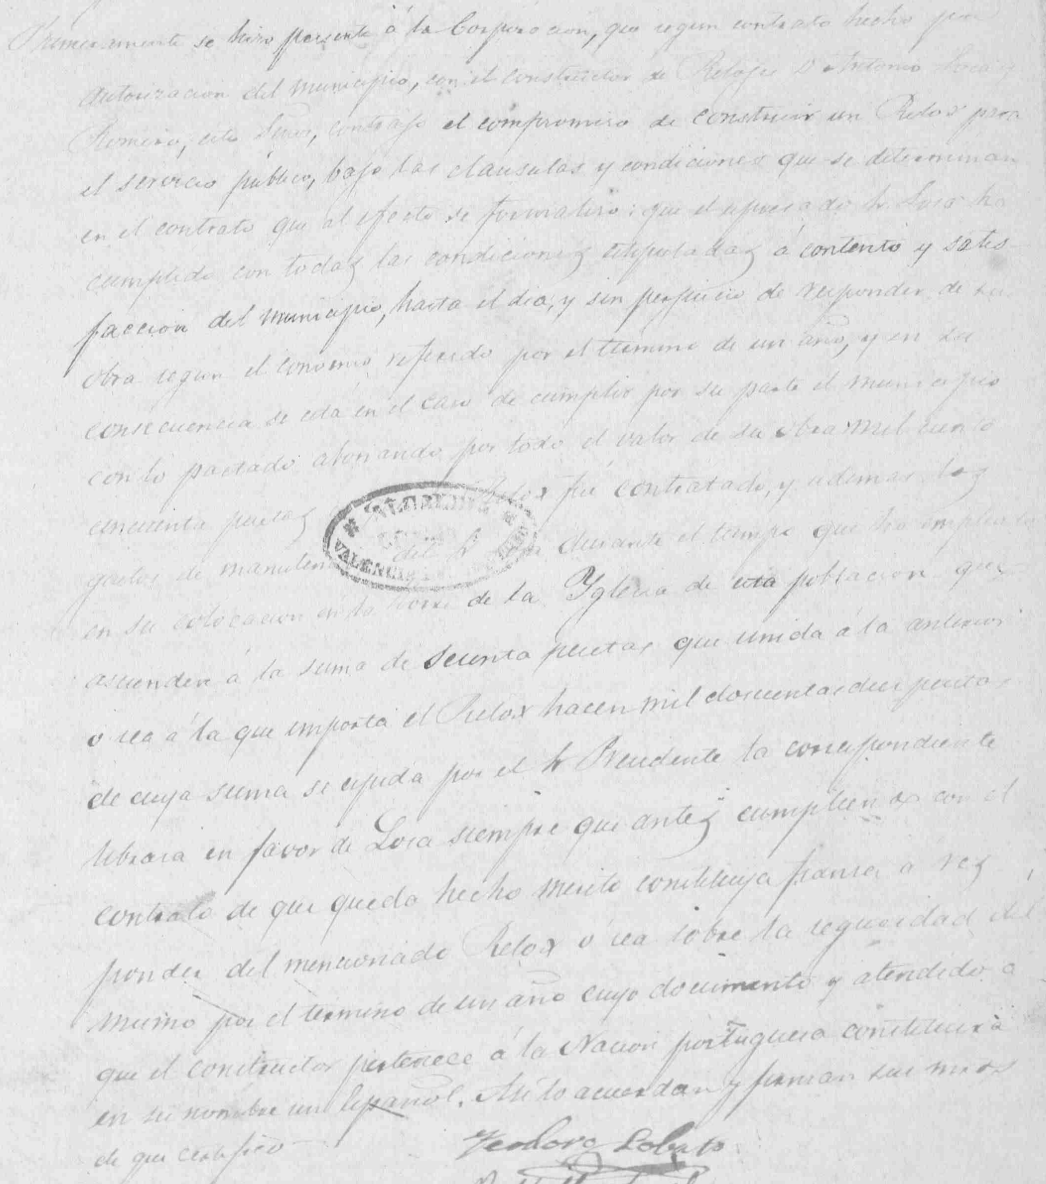 Primeramente se hizo presente á la Corporacion, que segun contrato hecho por
autorizacion del municipio, con el constructor de Relojes D. Antonio Loca y
Romero, este Señor, contrajo el compromiso de construir un Relox para
el servicio público, bajo las clausulas y condiciones que se determinan
en el contrato que al efecto se formalizo: que el espresado Sr. Loca ha
cumplido con todas las condiciones estipuladas á contento y satis-
faccion del municipio, hasta el dia, y sin perjuicio de responder de su
obra segun el convenio referido por el termino de un año, y en su
consecuencia se está en el caso de cumplir por su parte el municipio
con lo pactado abonando por todo el valor de su obra mil ciento
cincuenta pesetas Relox fué contratado, y ademas los
gastos de del durante el tiempo que ha empleado
en su colocacion en la torre de la Yglesia de esta poblacion que
asciende á la suma de sesenta pesetas que unida á la anterior
o sea á la que importa el Relox hacen mil doscientas diez pesetas
de cuya suma se espida por el Sr Presidente la correspondiente
libranza en favor de Loca siempre que antes cumpliendo con el
contrato de que queda hecho merito constituya fianza a res
ponder del mencionado Relox o sea sobre la seguridad del
mismo por el termino de un año cuyo documento y atendido a
que el constructor pertenece á la Nacion portuguesa constituirá
en su nombre un Español. Asi lo acuerdan y firman sus mrds
de que certifico
Teodoro Lobato